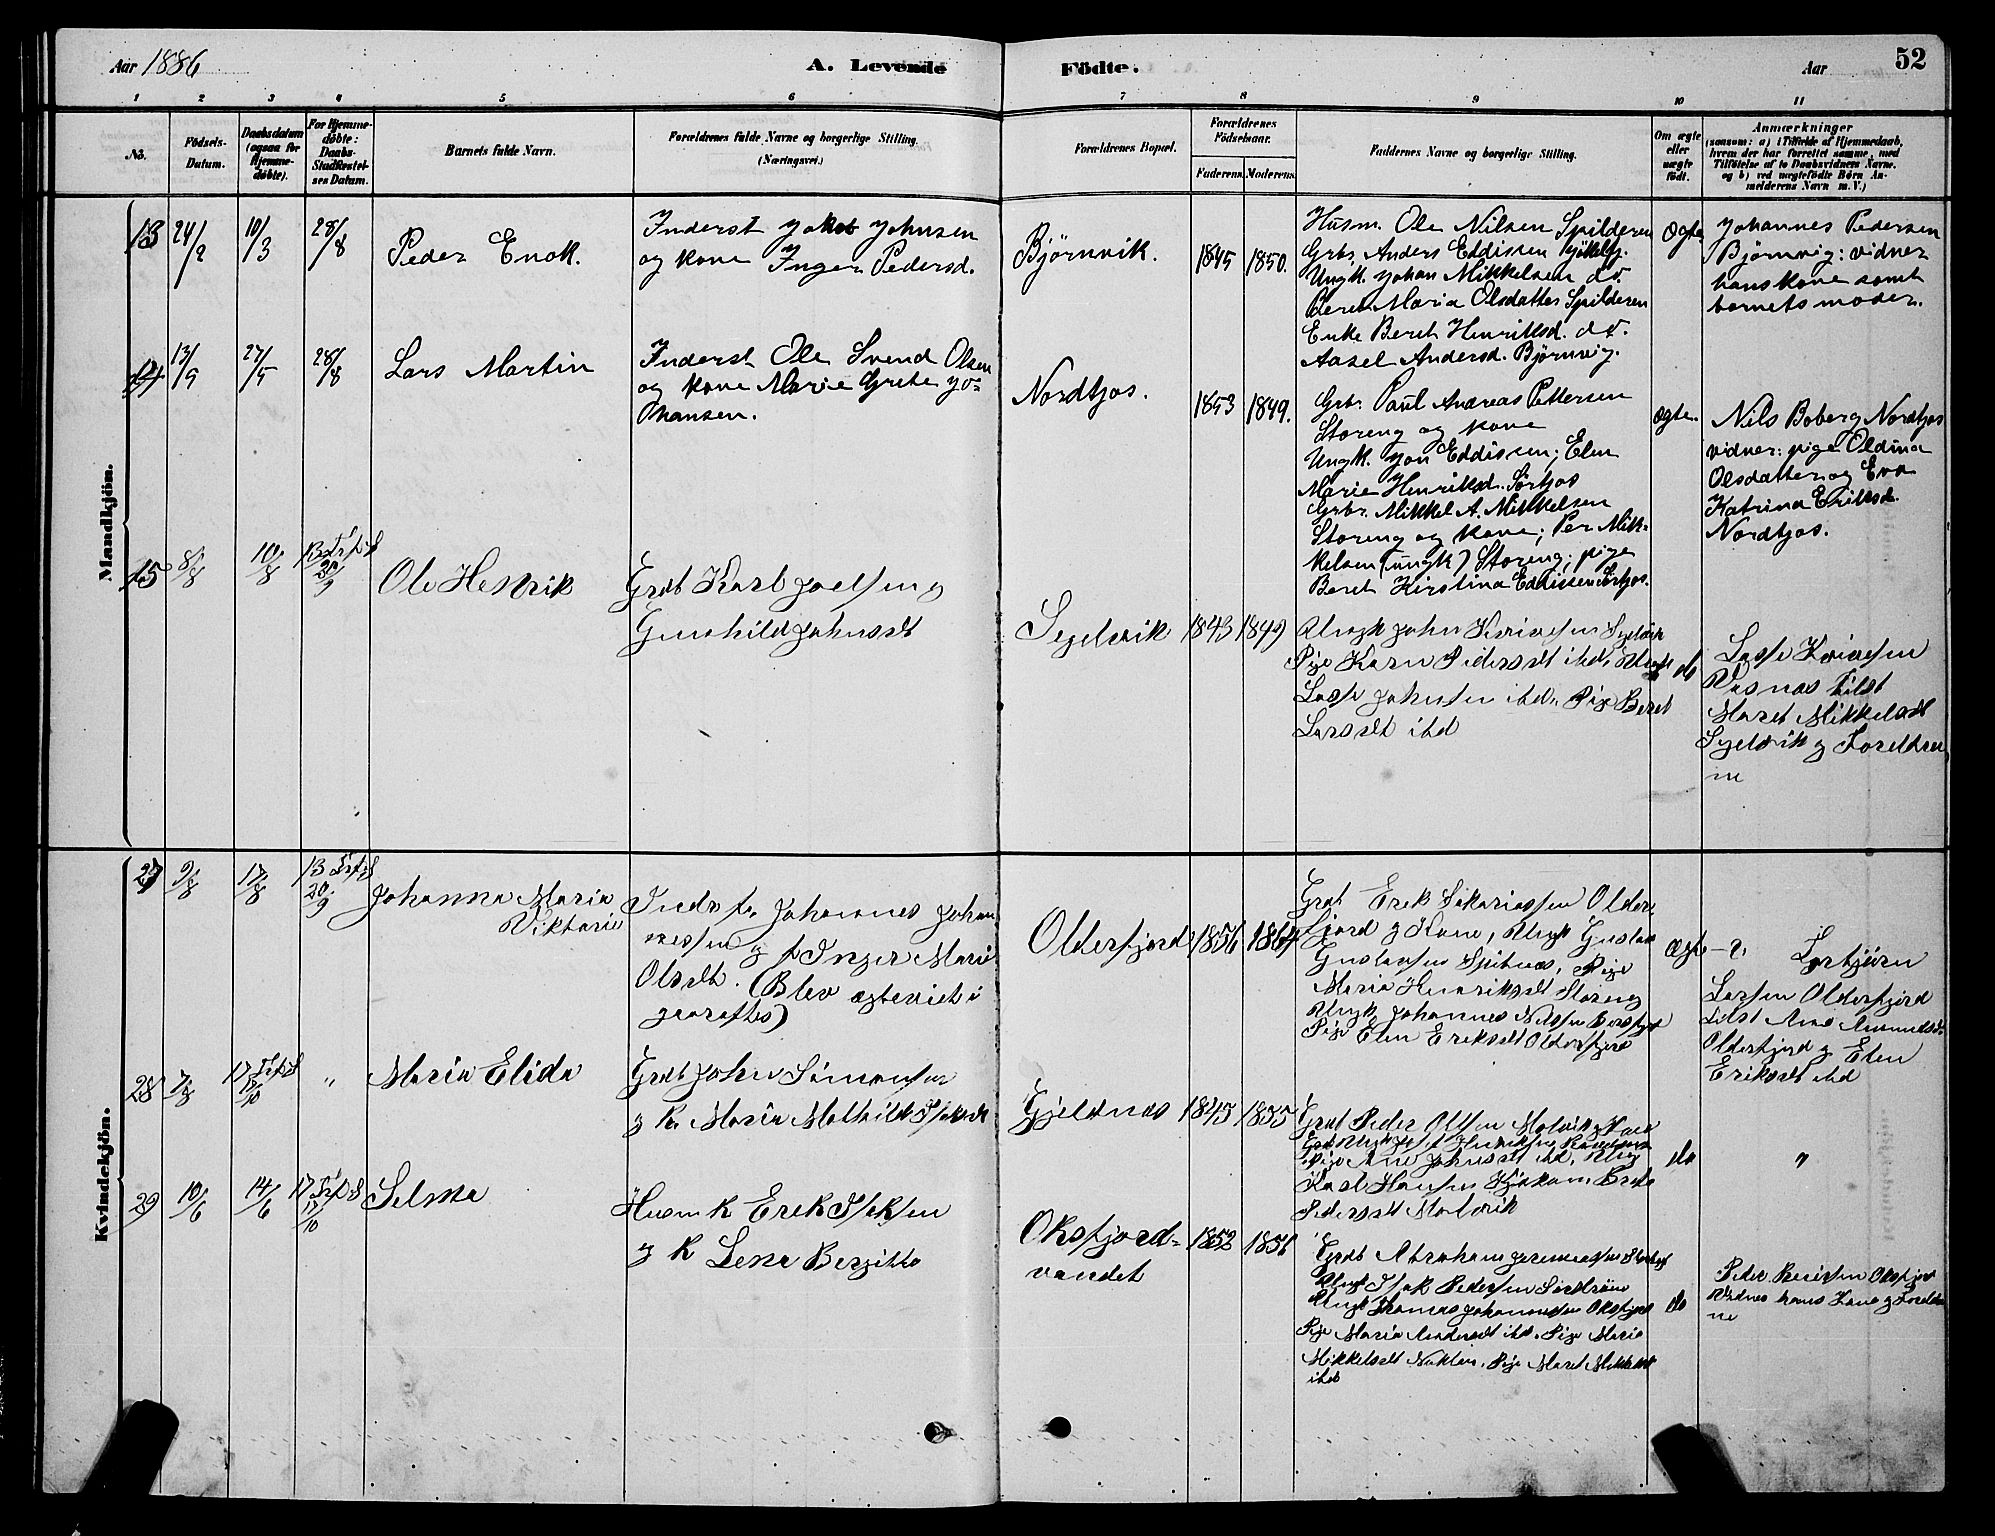 Aar 1886
A. Levende
Födte.
Aar
52
1 2 3 4 5 6 7 8 9 10 11
No.
Födsels-
Datum.
Daabsdatum
(ogsaa for
Hjemme-
døbte).
For Hjemme-
døbte:
Daabs-
Stadfæstel-
ses Datum.
Barnets fulde Navn.
Forældrenes fulde Navne og borgerlige Stilling.
(Næringsvei.)
Forældrenes Bopæl.
Forældrenes
Födselsaar.
Faderens. Moderens.
Faddernes Navne og borgerlige Stilling.
Om ægte
eller
uægte
født.
Anmærkninger
(saasom: a) i Tilfælde af Hjemmedaab,
hvem der har forrettet samme, med
Tilföielse af to Daabsvidners Navne.
og b) ved uægtefödte Börn An-
melderens Navn m. V.)
Mandkjön.
13
24/2
10/3
28/8
Peder Enok.
Inderst Jakob Johnsen
og kone Inger Pedersd.
Bjørnvik.
1845
1850.
Husm. Ole Nilsen Spilderen
Grbr. Anders Eddissen Kjøkelfj.
Ungk. Johan Mikkelsen do.
Beret Maria Olsdatter Spilderen
Enke Beret Henriksd. do.
Aasel Andersd. Bjørnvig.
Ægte
Johannes Pedersen
Bjørnvig: vidner
hans kone samt
barnets moder.
14
13/5
27/5
28/8
Lars Martin
Inderst Ole Svend Olsen
og kone Marie Grete Jo-
hansen.
Nordtjos.
1853
1849.
Grbr. Paul Andreas Pettersen
Storeng og kone
Ungk. Jon Eddissen; Elen
Marie Henriksd. Sørtjos
Grbr. Mikkel A. Mikkelsen
Storeng og kone; Per Mik-
kelsen (ungk) Storeng; pige
Beret Kirstina Eddissen Sørtjos.
ægte.
Nils Boberg Nordtjos
vidner: pige Oldina
Olsdatter og Eva
Katrina Eriksd.
Nordtjos.
15
8/8
10/8
13 S f T
20/9
Ole Henrik
Grdb Karl Joelsen g
Gunhild Johnsdt
Segelvik
1843
1849
Ungk John Segelvik
Pige Karn Pedersdt ibd, Ungk
Lasse Johnsen ibd. Pige Beret
Larsdt ibd
do
Lasse
tilst
Maret Mikkelsdt
Segelvik g Foreldrene
ne
Kvindekjön.
27
9/8
17/8
20/9
Johanna Maria
Viktoria
Johannes Johan
nessen g f Inger Marie
Olsdt. (Blev ægteviet i
Olderfjord
1856
1864
Grdb Erik Sakariassen Older
fjord g Kone, Ungk Gustav
Gustavsen Spitnes, Pige
Maria Henriksdt Storeng
Ungk Johannes Nilssen
Pige Elen Eriksdt Olderfjord
ægte
Larsen Olderfjord
tilst
Olderfjord g Elen
Eriksdt ibd
28
7/8
17/10
"
Maria Elida
Grdb John Simonsen
g K. Maria Mathilde Isaksdt
Gjeldnes
1845
1855
Grdb Peder Olsen Molvik g Kone
Pige Ane Johnsdt ibd, Ungk
Karl Hansen
Pedersdt Molvik
do
"
29
10/6
14/6
17/10
Selma
Husm K Erik Isaksen
g K Lena Bergitta
Oksfjord-
vandet
1852
1856
Grdb Abraham Jeremiassen
Ungk Isak Pedersen
Ungk Thomas Johannesen Oksfjord
Pige Maria Andersdt ibd. Pige Maria
Mikkelsdt, Pige Maret Mikkelsdt
ibd
do
Peder Oksfjord
Vidner hans Kone g Foreldre
ne